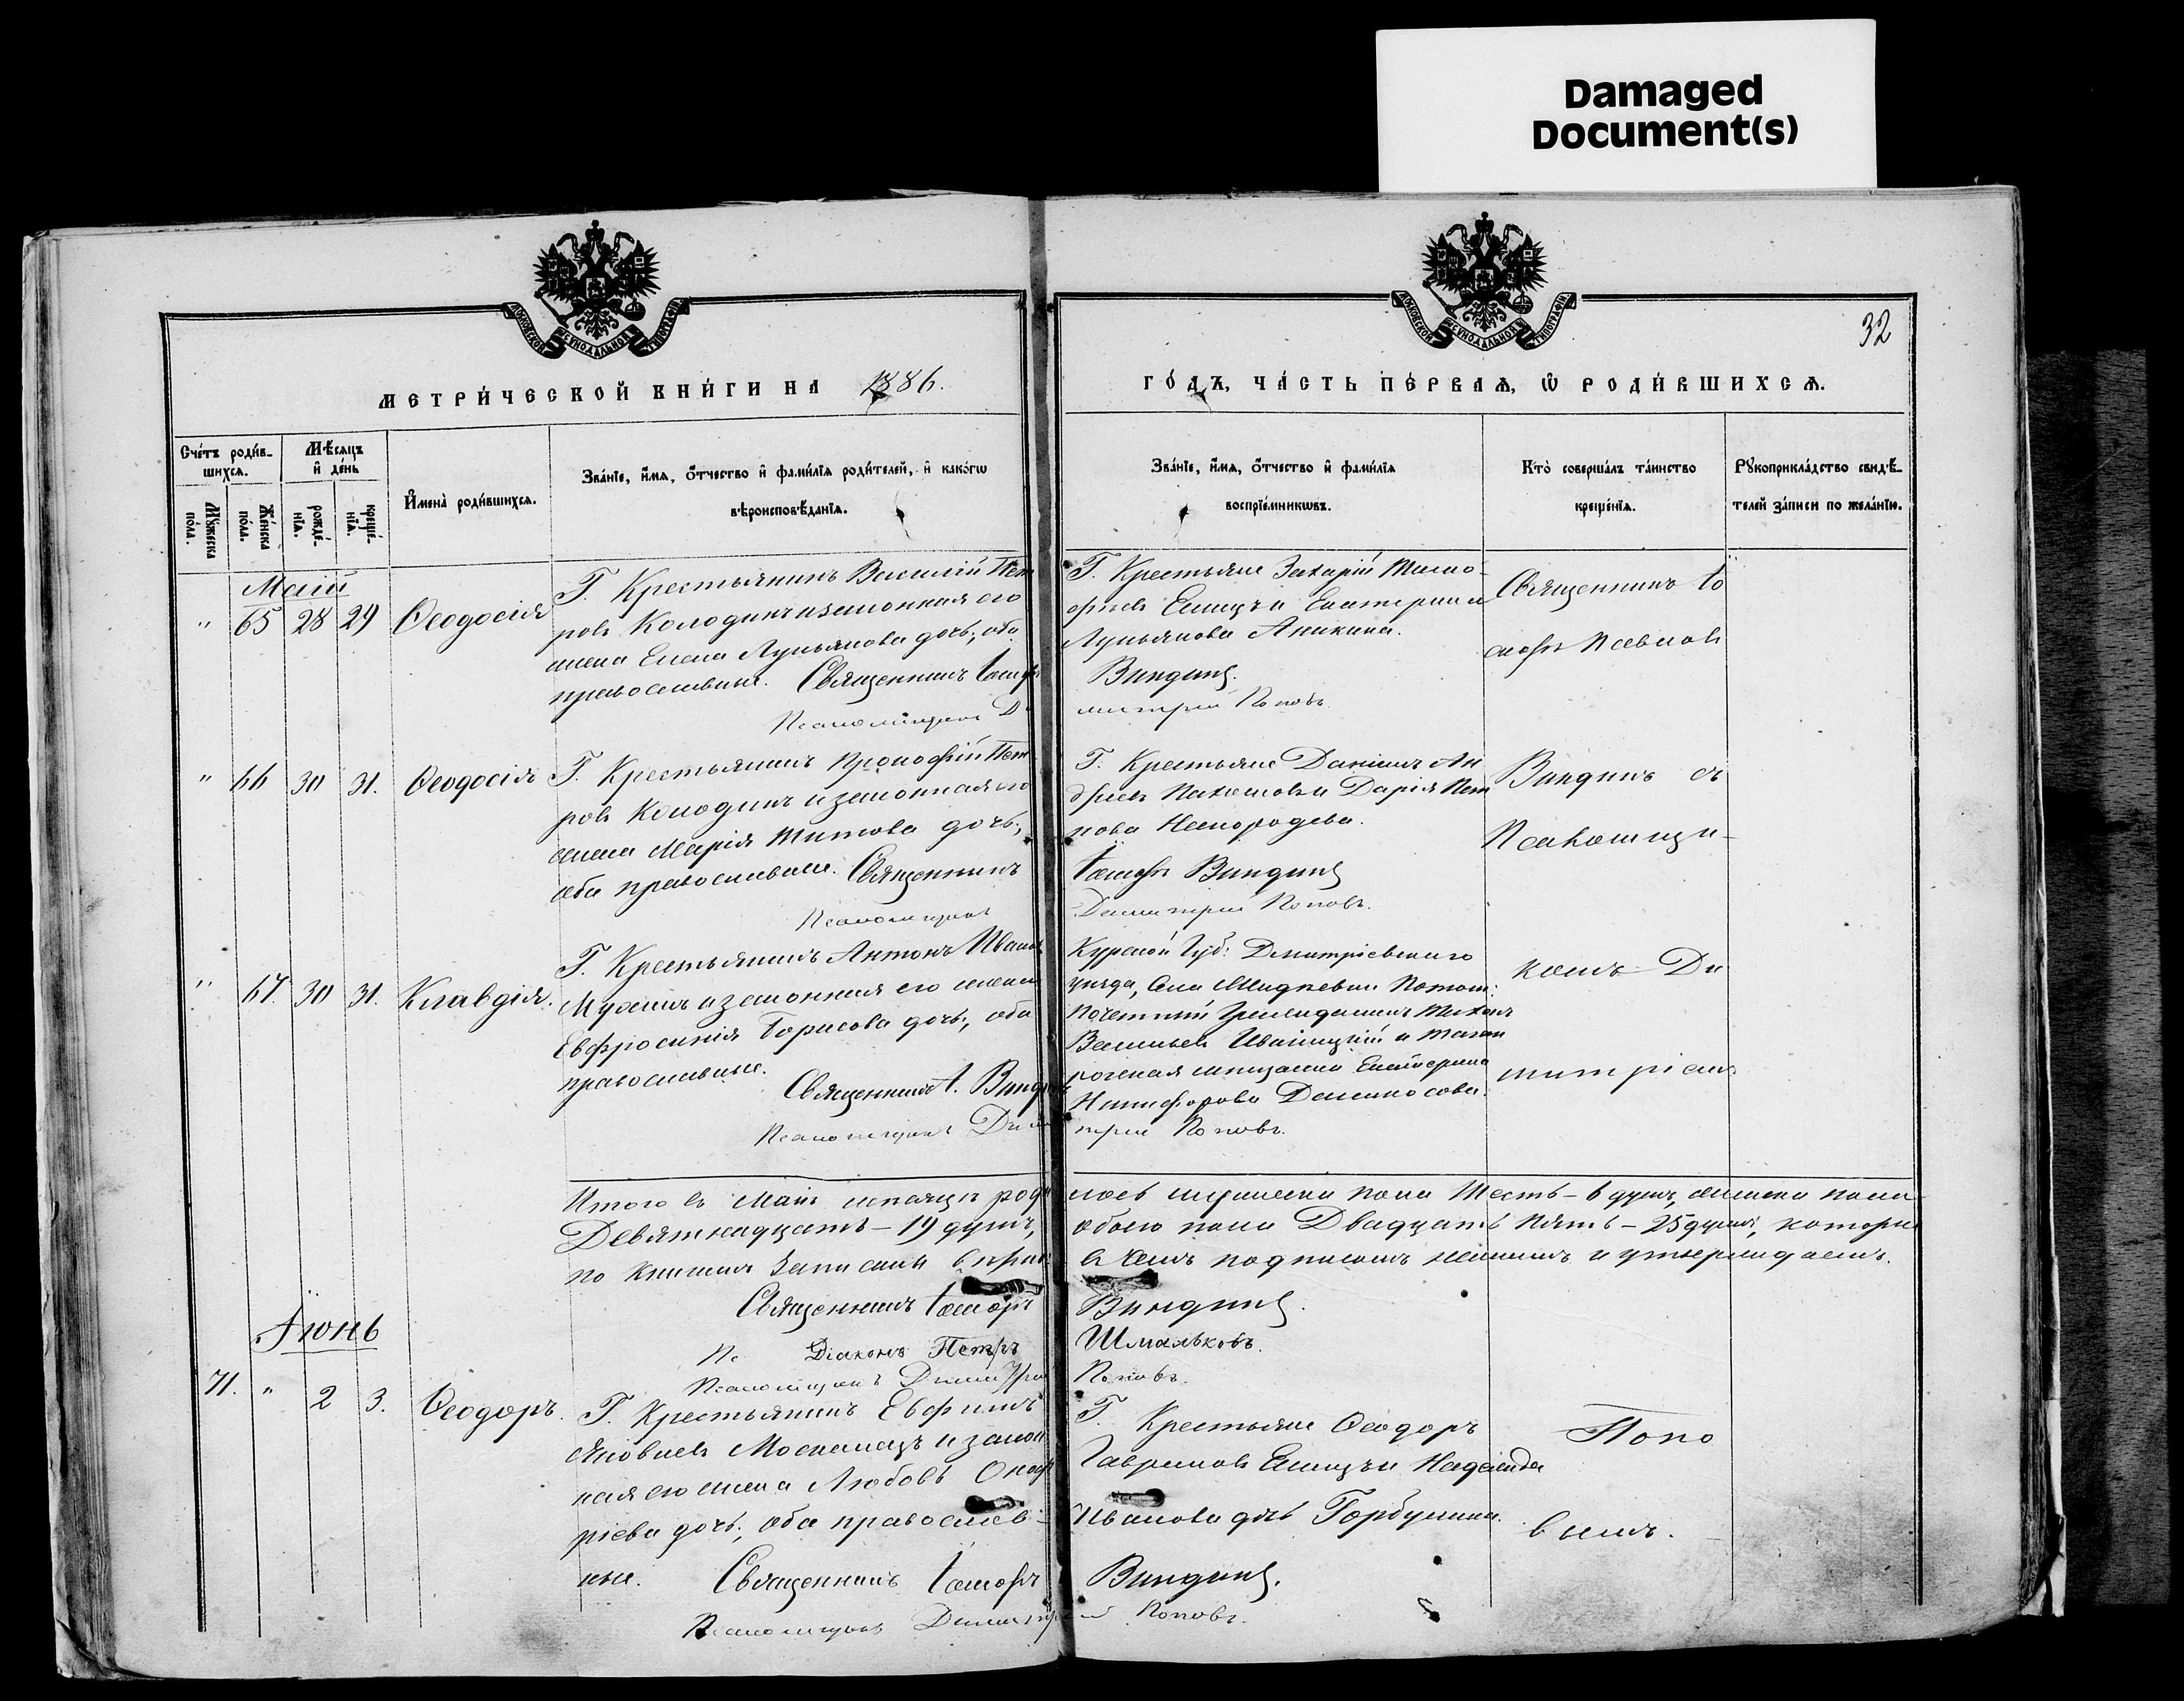 Damaged
Document(s)
МОСКОВСКОЙ СѴНОДАЛЬНОЙ ТИПОГРАФІИ
МОСКОВСКОЙ СѴНОДАЛЬНОЙ ТИПОГРАФІИ
32
МЕТРИ́ЧЕСКОЙ КНИ́ГИ НА 1886.
ГО́ДЪ, ЧА́СТЬ ПЕ́РВАѦ, Ѡ҆ РОДИ́ВШИХСѦ.
Сче́тъ роди́в-
шихсѧ.
Мѣ́сѧцъ
и҆ де́нь
Мꙋ́жеска
по́ла.
Же́нска
по́ла.
рожде́-
нїѧ.
креще́-
нїѧ.
И҆мена̀ роди́вшихсѧ.
Зва́нїе, и҆́мѧ, ѻ҆́тчество и҆ фами́лїѧ роди́телей, и҆ како́гѡ
вѣроисповѣ́данїѧ.
Зва́нїе, и҆́мѧ, ѻ҆́тчество и҆ фами́лїѧ
воспрїе́мникѡвъ.
Кто̀ соверша́лъ та́инство
креще́нїѧ.
Рꙋкоприкла́дство свидѣ́-
телей за́писи по жела́нїю.
Маій
" 65 28 29 Ѳеодосія
Г. Крестьянинъ Василій Пет
ровъ Колодинъ и законная его
жена Елена Лукьянова дочь, оба
православные. Священникъ Іосиф
Псаломщикъ Д
Г. Крестьяне Захарій
Елецъ и Екатерина
Лукьянова Аникина.
Виндинъ.
митрій Поповъ.
Священникъ Іо
сифъ
" 66 30 31. Ѳеодосія
Г. Крестьянинъ Прокофій Пет
ровъ Колодинъ и законная его
жена Марія Титова дочь,
оба православные. Священникъ
Псаломщикъ
Г. Крестьяне Даніилъ Ан
дреевъ Пахомовъ и Дарія
Іосифъ Виндинъ
Димитрій Поповъ.
Виндинъ съ
Псаломщи-
" 67. 30 31. Клавдія.
Г. Крестьянинъ Антонъ Иванов
и законная его жена
Евфросинія Борисова дочь, оба
православные.
Священникъ І. Виндинъ
Псаломщикъ Дими
Курской Губ: Дмитріевскаго
уѣзда, Села
Почетный Гражданинъ
Васильевъ и Таган
рогская мѣщанка Екатерина
Никифорова
трій Поповъ.
комъ Ди
митріемъ
Итого въ Маѣ мѣсяцѣ роди
лось мужеска пола Шесть – 6 душъ, женска пола
Девятнадцать – 19 душъ,
обоего пола Двадцать пять – 25 душъ, которые
по книгамъ записаны вѣрно
въ чемъ подписомъ нашимъ и утверждаемъ.
Священникъ Іосифъ
Виндинъ.
Пс Діаконъ Петръ
Шмальковъ.
Псаломщикъ Димитрій
Поповъ.
Іюнь
71. " 2 3. Ѳеодоръ.
Г. Крестьянинъ Евфимъ
Яковлевъ и закон
ная его жена Любовь
ріева дочь, оба православ-
ные. Священникъ Іосифъ
Псаломщикъ Димитр
Г. Крестьяне Ѳеодоръ
Гавриловъ Елецъ и Надежда
Иванова дочь Горбункина.
Виндинъ.
ій Поповъ.
Попо
вымъ.